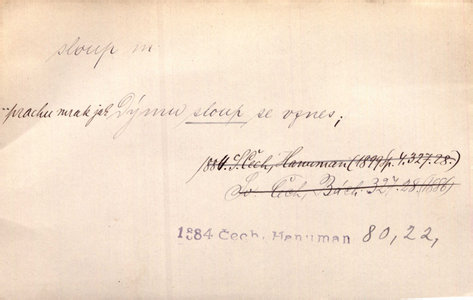 sloup m
prachu mrak jak Dýmu sloup se vznes;
1884. S. Čech, Hanuman (1899) p. 4. 327. 28.
Sv. Čech, Básně 32, 28. (1886)
1884 Čech, Hanuman 80, 22,